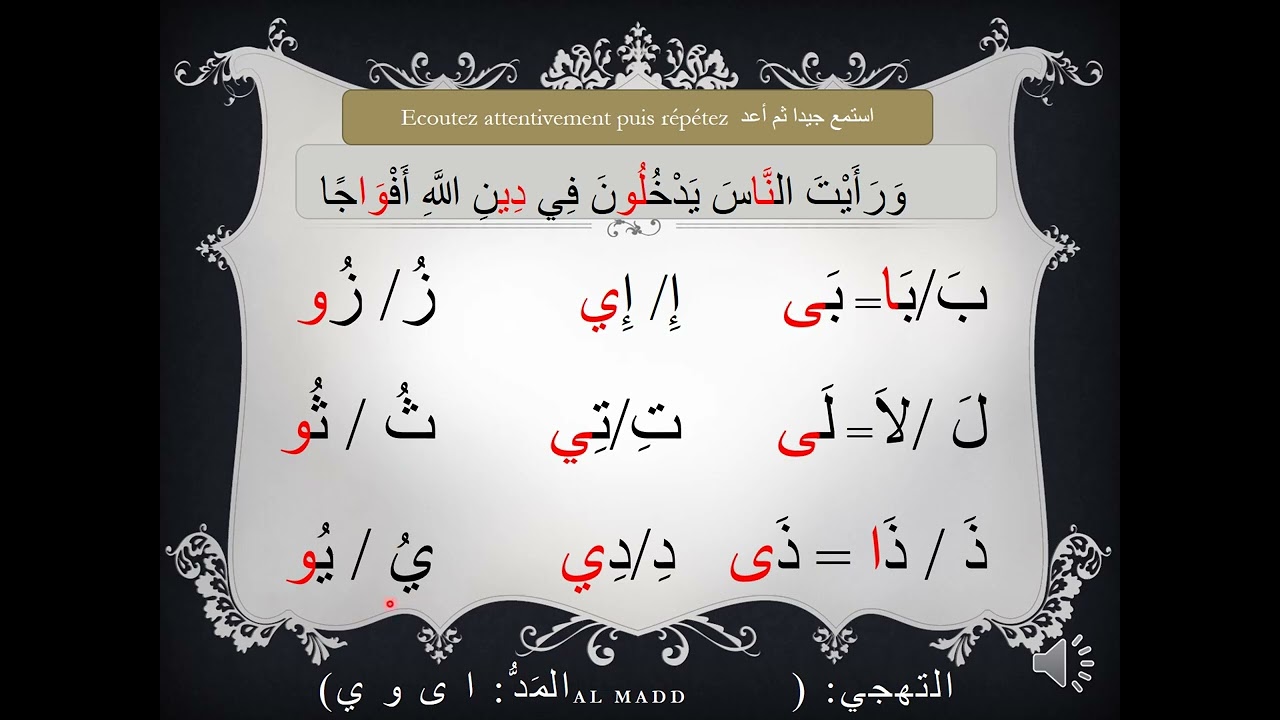 Ecoutez attentivement puis répétez استمع جيدا ثم أعد
وَرَأَيْتَ النَّاسَ يَدْخُلُونَ فِي دِينِ اللَّهِ أَفْوَاجًا
بَ/بَا= بَى إِ/ إِي زُ/ زُو
لَ /لاَ= لَى تِ/تِي ثُ / ثُو
ذَ / ذَا = ذَى دِ/دِي يُ / يُو
التهجي: ( AL MADD المَدُّ: ا ى و ي)